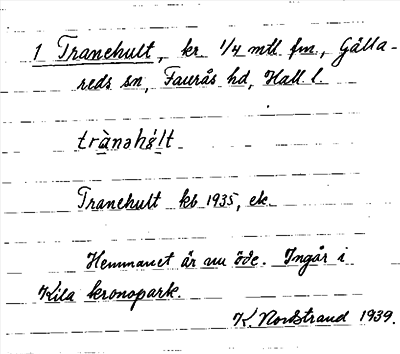 1 Tranehult, kr. 1/4 mtl. fm., Gälla-
reds sn, Faurås hd, Hall. l.
Tranehult kb 1935, ek.
Hemmanet är nu öde. Ingår i
Kila kronopark.
K. Nordstrand 1939.